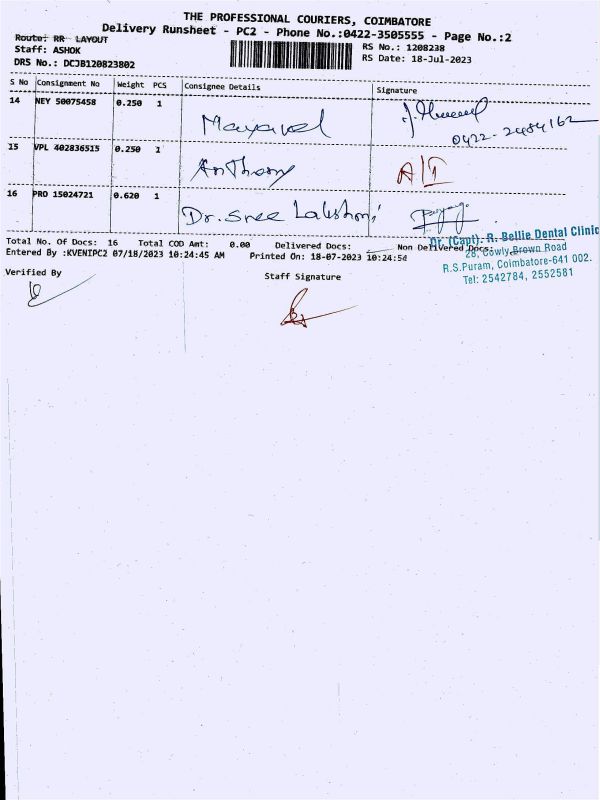 THE PROFESSIONAL COURIERS, COIMBATORE
Delivery Runsheet - PC2 - Phone No.:0422-3505555 - Page No.:2
Route: RR LAYOUT
RS No.: 1208238
Staff: ASHOK
RS Date: 18-Jul-2023
DRS No.: DCJB120823802
S No Consignment No Weight PCS Consignee Details Signature
14 NEY 50075458 0.250 1 Mayavel
0422-2484162
15 VPL 402836515 0.250 1 Anthony A/I
16 PRO 15024721 0.620 1 Dr. Sree Lakshmi
Total No. Of Docs: 16 Total COD Amt: 0.00 Delivered Docs: Non Delivered Docs:
Entered By :KVENIPC2 07/18/2023 10:24:45 AM Printed On: 18-07-2023 10:24:5
Dr. (Capt). R. Bellie Dental Clinic
28, Cowly Brown Road
R.S.Puram, Coimbatore-641 002.
Tel: 2542784, 2552581
Verified By
Staff Signature